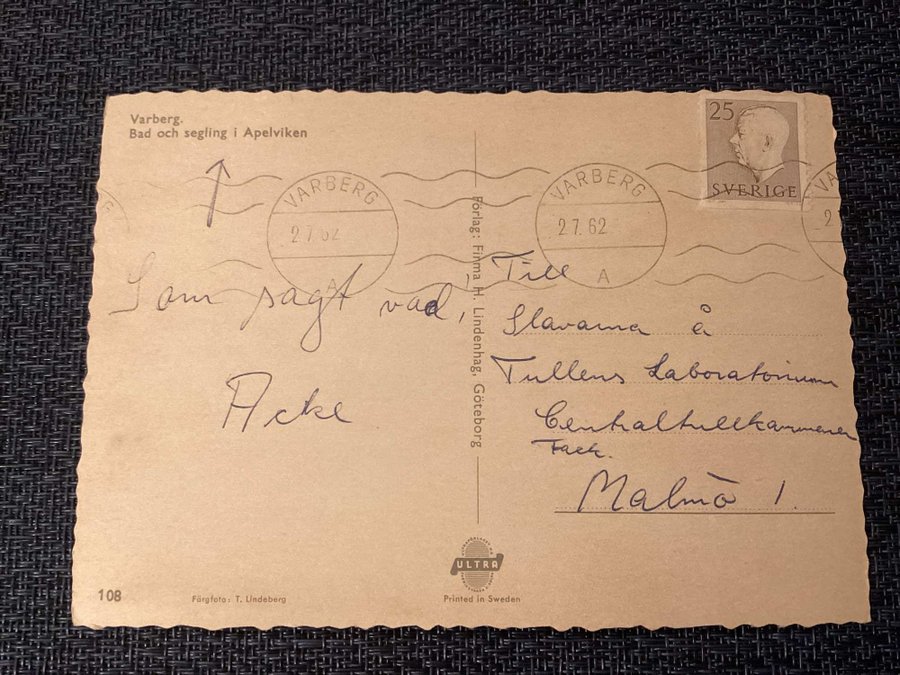 Varberg.
Bad och segling i Apelviken
25
SVERIGE
VARBERG
2 7. 62
A
VARBERG
2 7. 62
A
VA
2
Som sagt vad,
Acke
Förlag: Firma H. Lindenhag, Göteborg
Till
Slavarna å
Tullens Laboratorium
Centraltullkammaren
Fack.
Malmö 1.
108
Färgfoto: T. Lindeberg
ULTRA
Printed in Sweden